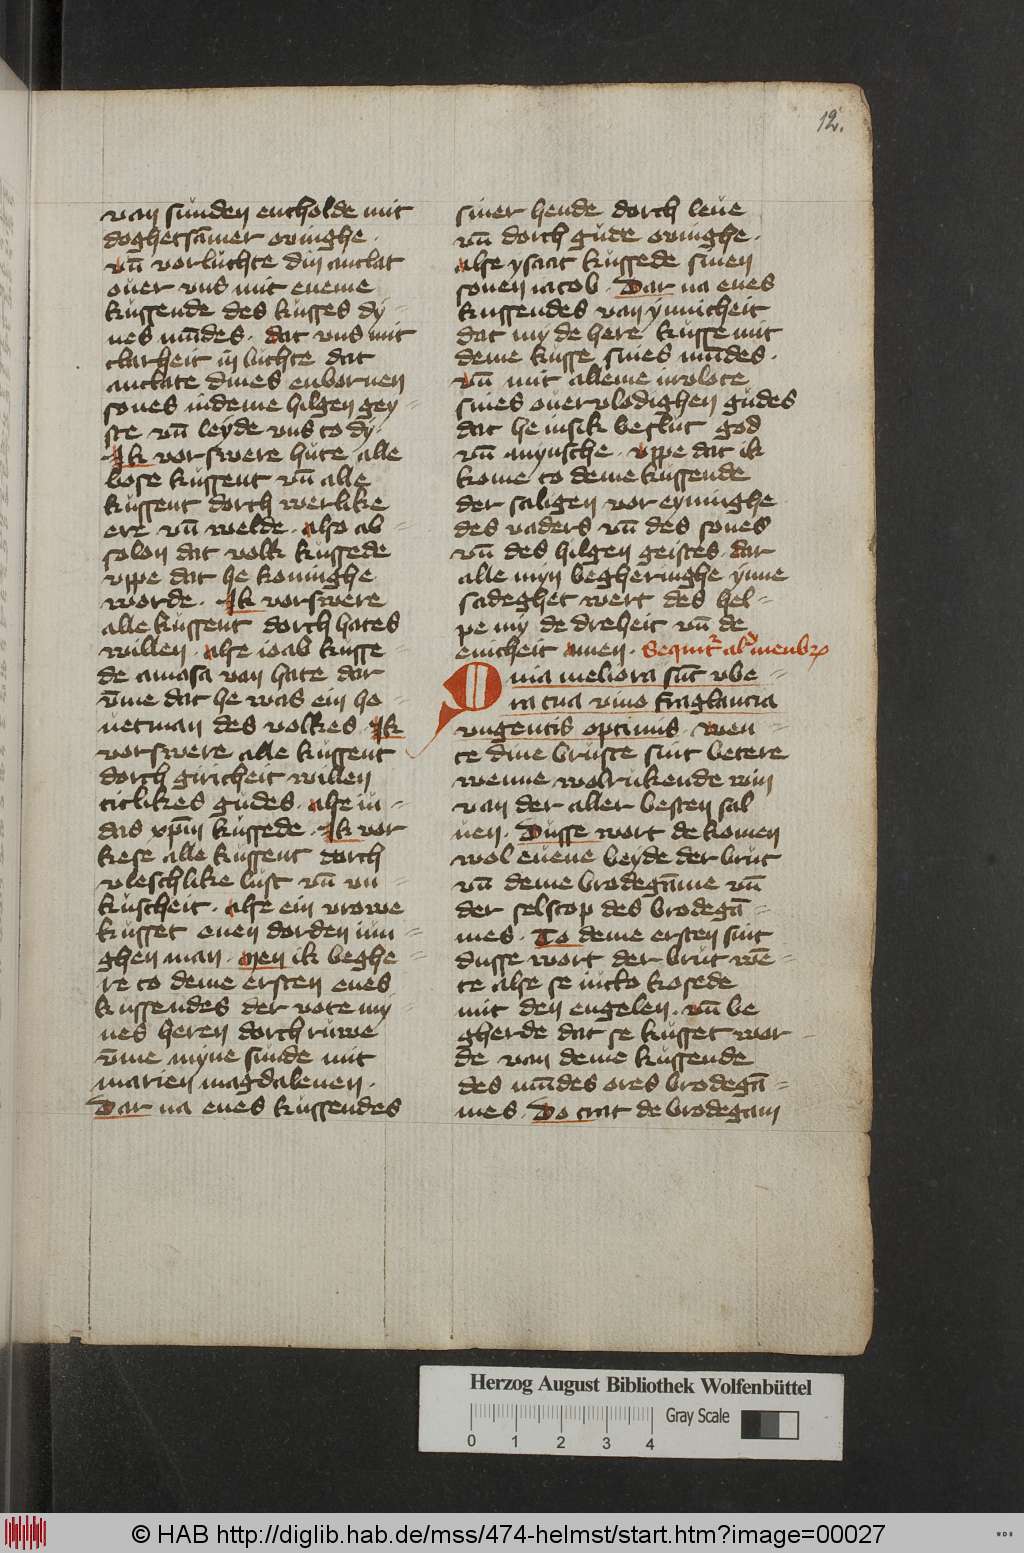 12.
van sunden entholde mit
doghetsāmer ouinghe .
vn̄ vorluchte din antlat
ouer vns mit eneme
kussende des kusses dy
nes mūdes . dat vns mit
clarheit in luchte dat
antlate dines enbornen
sones indeme hilgen gey-
ste vn̄ leyde vns to dy .
Ik vorswere hute alle
bose kussent vn̄ alle
kussent dorch werlike
ere vn̄ welde . also ab-
solon dat volk kussede
vppe dat he koninghe
worde . Ik vorswere
alle kussent dorch hates
willen . alse ioab kusse-
de amasa van hate dar
v̄me dat he was ein ho-
uetman des volkes . Ik
vorswere alle kussent
dorch giricheit willen
titlikes gudes . alse iu-
das xp̄m kussede . Ik vor
kese alle kussent dorch
vleschlike lust vn̄ vn-
kuscheit . alse ein vrowe
kusset enen dorden iun-
ghen man . Men ik beghe-
re to deme ersten enes
kussendes der vote my-
nes heren dorch ruwe
v̄me myne sunde mit
marien magdalenen .
Dar na enes kussendes
siner hende dorch leue
vn̄ dorch gude ouinghe .
alse ysaac kussede sinen
sonen iacob . Dar na enes
kussendes van ynnicheit
dat my de here kusse mit
deme kusse sines mūdes .
vn̄ mit alleme invlote
sines ouervlodighen gudes
dat he insik beslut god
vn̄ mynsche . vppe dat ik
kome to deme kussende
der saligen vor eyninghe
des vaders vn̄ des sones
vn̄ des hilgen geistes . dar
alle myn begheringhe ynne
sadeghet wert des hel-
pe my de dreheit vn̄ de
enicheit amen .
Quia meliora sūt vbe-
ra tua vino fraglancia
vngentis optimis . Wen-
te dine bruste sint betere
wenne wolrukende win
van der aller besten sal
uen . Dusse wort dekomen
wol euene beyde der brut
vn̄ deme brodegāme vn̄
der selscop des brodegā-
mes . To deme ersten sint
dusse wort der brut wē-
te alse se nuto kosede
mit den engelen . vn̄ be
gherde dat se kusset wor-
de van deme kussende
des mūdes ores brodegā-
mes . Do trat de brodegam
Herzog August Bibliothek Wolfenbüttel
Gray Scale
0 1 2 3 4
© HAB http://diglib.hab.de/mss/474-helmst/start.htm?image=00027